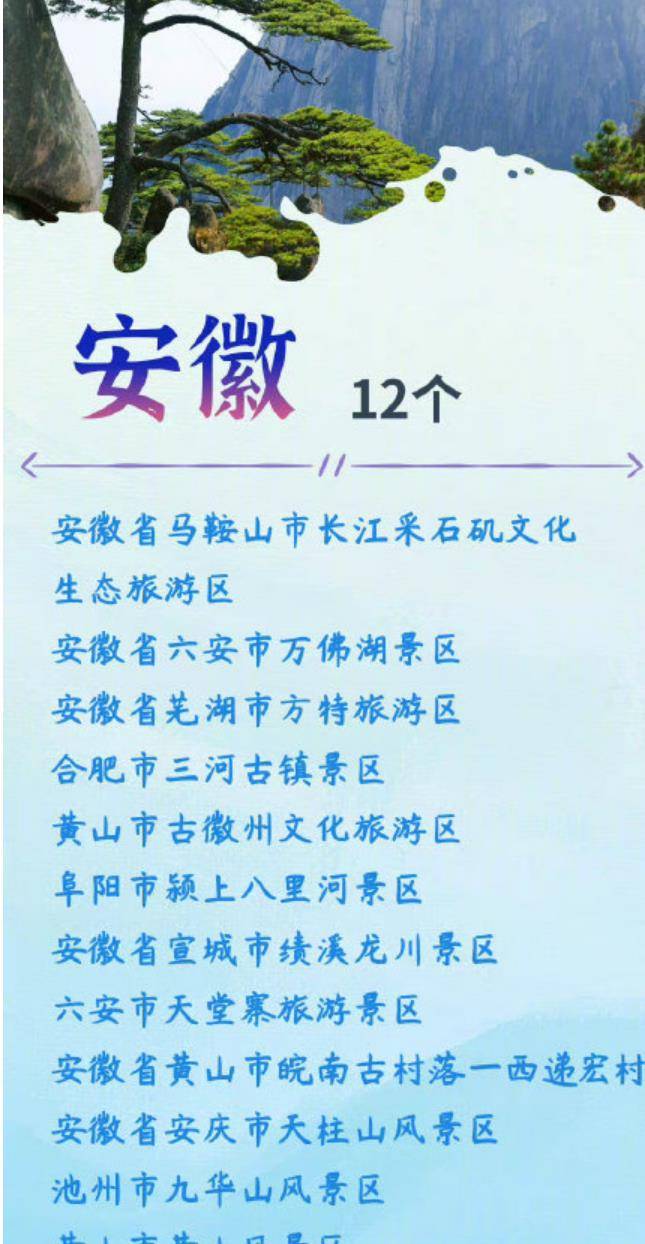 安徽
12个
安徽省马鞍山市长江采石矶文化
生态旅游区
安徽省六安市万佛湖景区
安徽省芜湖市方特旅游区
合肥市三河古镇景区
黄山市古徽州文化旅游区
阜阳市颍上八里河景区
安徽省宣城市绩溪龙川景区
六安市天堂寨旅游景区
安徽省黄山市皖南古村落一西递宏村
安徽省安庆市天柱山风景区
池州市九华山风景区